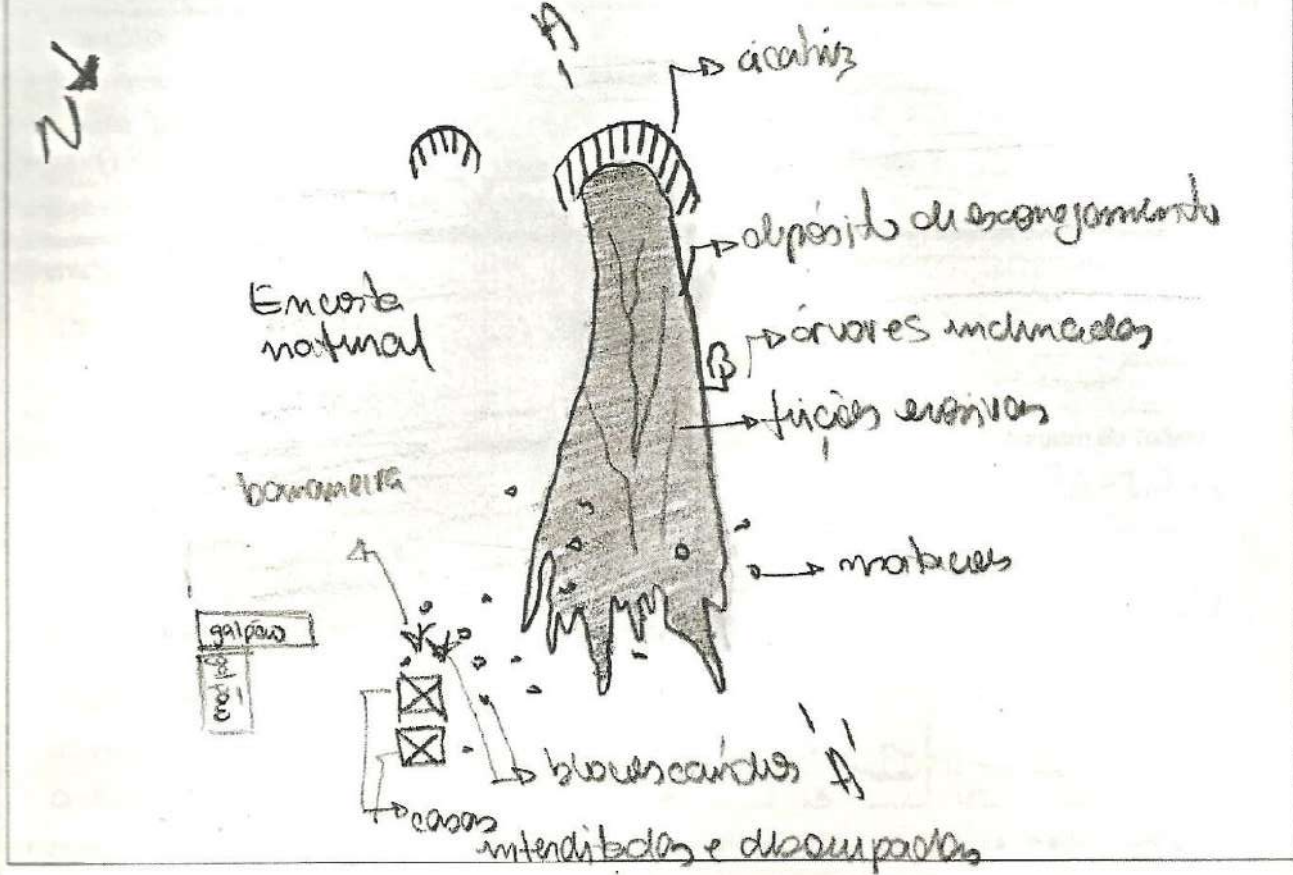 N
A
cicatriz
depósito de escorregamento
Encosta
natural
árvores inclinadas
feições erosivas
bananeira
matacões
galpão
galpão
blocos caídos
A'
casas
interditadas e desocupadas